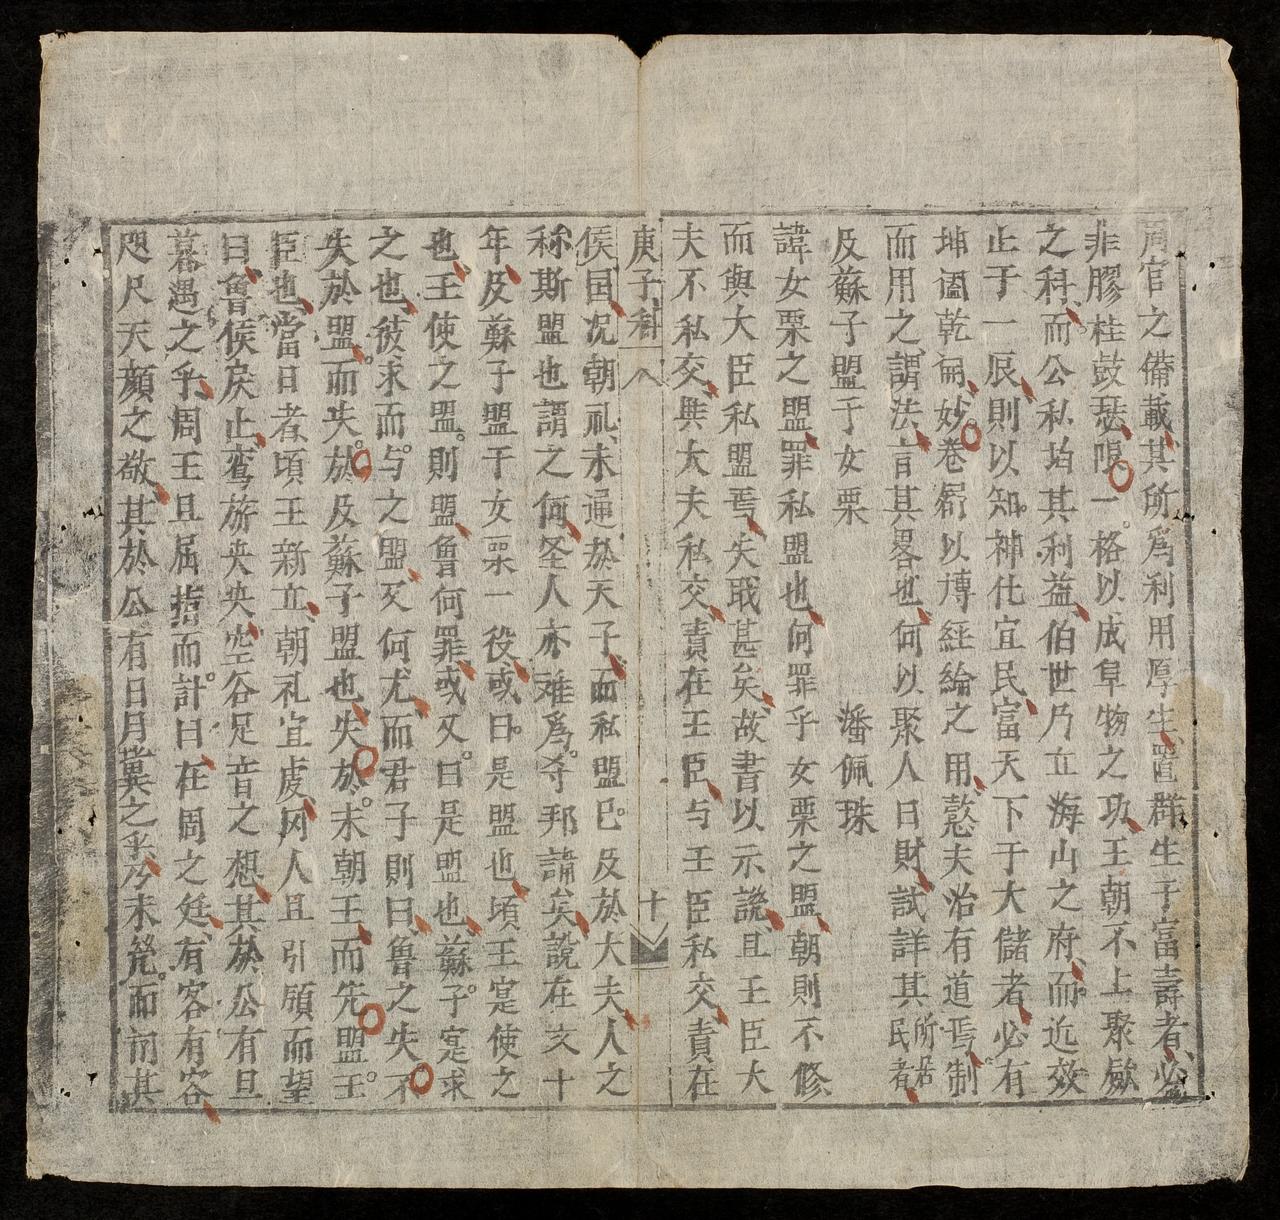 周官之備載其所爲利用厚生置群生于富壽者必
非膠柱鼓瑟限一格以成阜物之功王朝不上聚斂
之科而公私均其利益伯世乃立海山之府而近效
止于一辰則以知神化宜民富天下于大儲者必有
坤闔乾闢妙卷舒以博經綸之用憖夫治有道焉制
而用之謂法言其畧也何以聚人曰財試詳其所居民者
及蘇子盟于女栗 潘佩珠
諱女栗之盟罪私盟也何罪乎女栗之盟朝則不修
而與大臣私盟焉失戝甚矣故書以示譏且王臣大
夫不私交與大夫私交責在王臣与王臣私交責在
庚子科 八 十
侯国况朝礼未通於天子而私盟已及於大夫人之
称斯盟也謂之何圣人亦难爲夺邦諱矣說在文十
年及蘇子盟于女栗一役或曰是盟也頃王寔使之
也王使之盟則盟魯何罪或又曰是盟也蘇子寔求
之也彼求而与之盟又何尤而君子則曰魯之失不
失於盟而失於及蘇子盟也失於未朝王而先盟王
臣也當日者頃王新立朝礼宜虔冈人且引領而望
曰魯侯戾止鸞旂央央空谷足音之想其於公有旦
暮遇之乎周王且屈指而計曰在周之廷有客有客
咫尺天顏之敬其於公有日月冀之乎乃未㡬而甫其